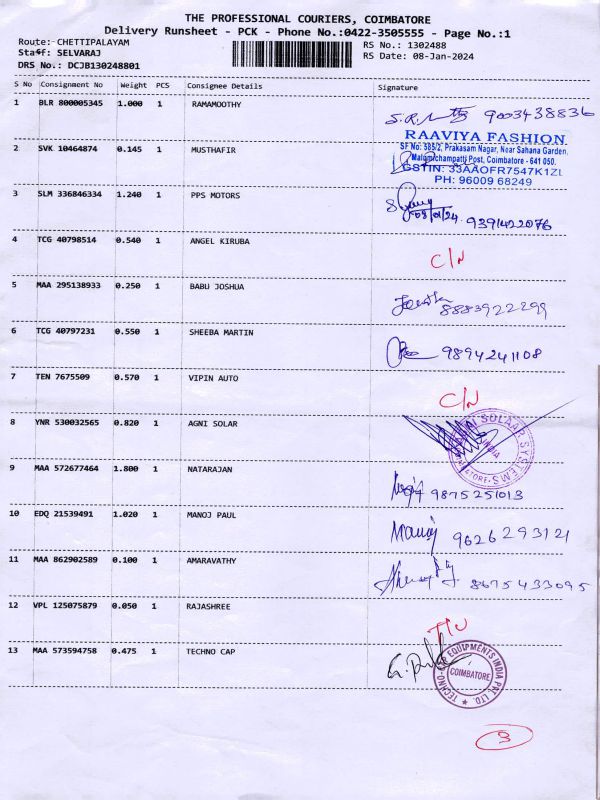 THE PROFESSIONAL COURIERS, COIMBATORE
Delivery Runsheet - PCK - Phone No.:0422-3505555 - Page No.:1
Route: CHETTIPALAYAM RS No.: 1302488
Staff: SELVARAJ RS Date: 08-Jan-2024
DRS No.: DCJB130248801
S No Consignment No Weight PCS Consignee Details Signature
1 BLR 800005345 1.000 1 RAMAMOOTHY 9003438836
RAAVIYA FASHION
SF No: 585/2, Prakasam Nagar, Near Sahana Garden,
2 SVK 10464874 0.145 1 MUSTHAFIR
Malumichampatti Post, Coimbatore - 641 050.
GSTIN: 33AAOFR7547K1ZL
PH: 96009 68249
3 SLM 336846334 1.240 1 PPS MOTORS
08/01/24 9391422076
4 TCG 40798514 0.540 1 ANGEL KIRUBA
C/N
5 MAA 295138933 0.250 1 BABU JOSHUA
8883922299
6 TCG 40797231 0.550 1 SHEEBA MARTIN
9894241108
7 TEN 7675509 0.570 1 VIPIN AUTO
C/N
8 YNR 530032565 0.820 1 AGNI SOLAR
SOLAAR SYSTEMS
INDIA
9 MAA 572677464 1.800 1 NATARAJAN
9875251013
10 EDQ 21539491 1.020 1 MANOJ PAUL
Manoj 9626293121
11 MAA 862902589 0.100 1 AMARAVATHY
8675433095
12 VPL 125075879 0.050 1 RAJASHREE
13 MAA 573594758 0.475 1 TECHNO CAP
TECHNO EQUIPMENTS INDIA PVT. LTD.
COIMBATORE
3